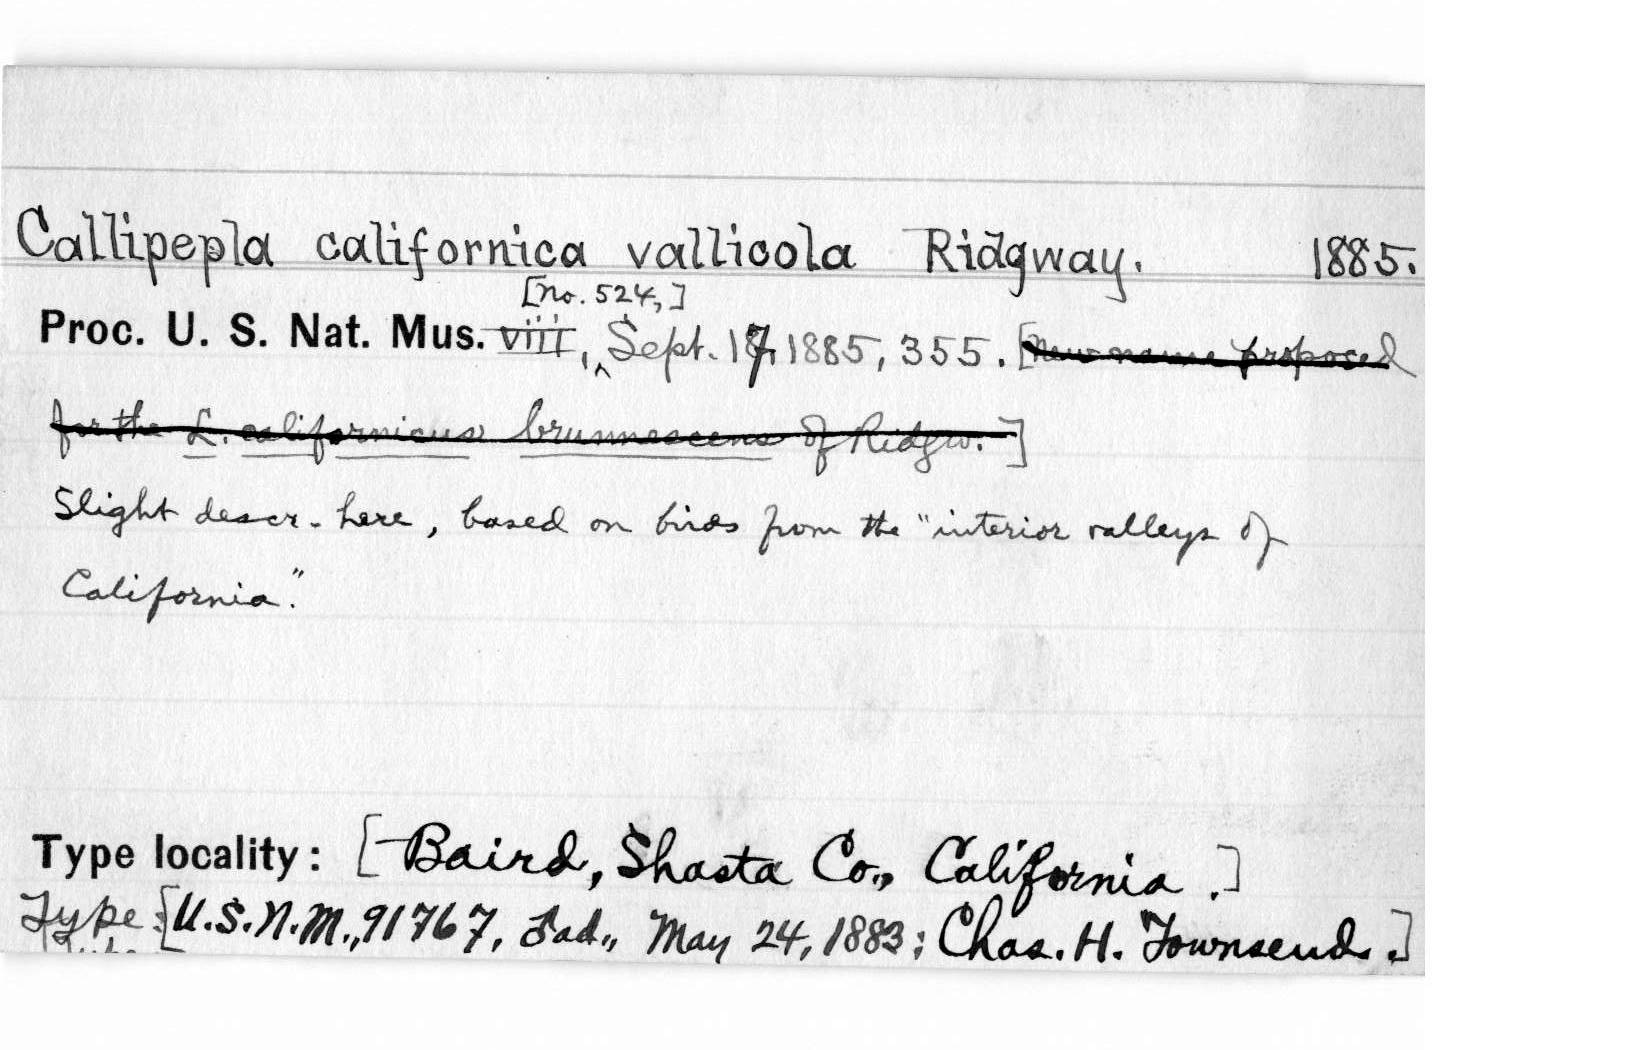 Callipepla californica vallicola Ridgway. 1885.
[no. 524,]
Proc. U. S. Nat. Mus. viii, Sept. 17, 1885, 355. [New name proposed
for the L. californicus brunnescens of Ridgw.]
Slight descr. here, based on birds from the "interior valleys of
California."
Type locality: [Baird, Shasta Co., California.]
Type: [U.S.N.M., 91767, ♂ad., May 24, 1883; Chas. H. Townsend.]